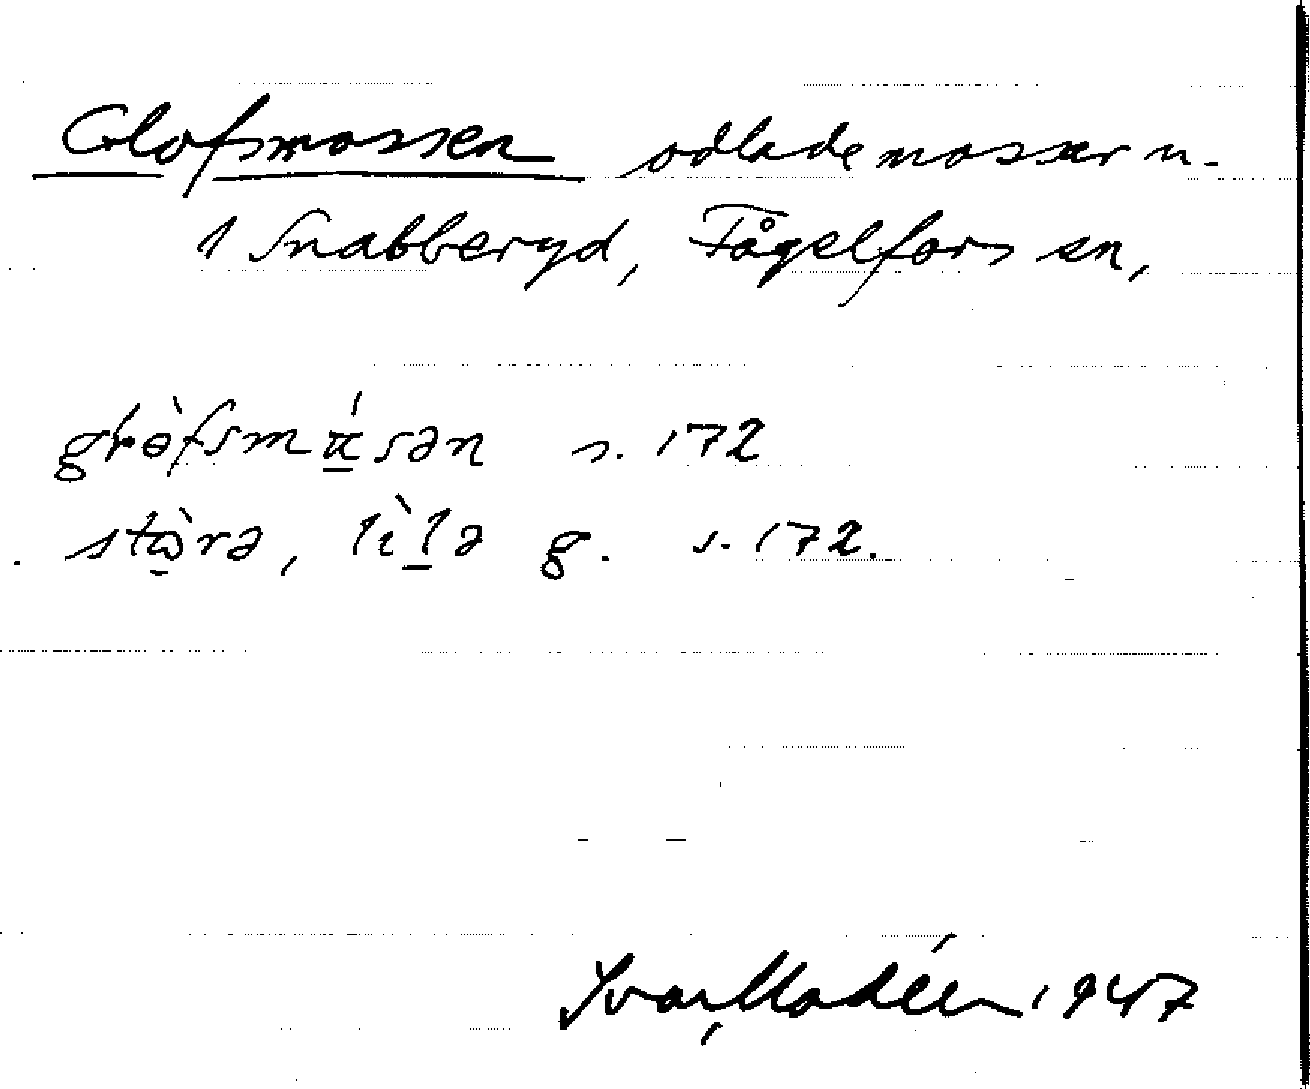 Glofsmossen odlade mossar u.
1 Snabberyd, Fågelfors sn,
s. 172
stɷ̀rə, lìlə g. s. 172.
Ivar Modéer 1947